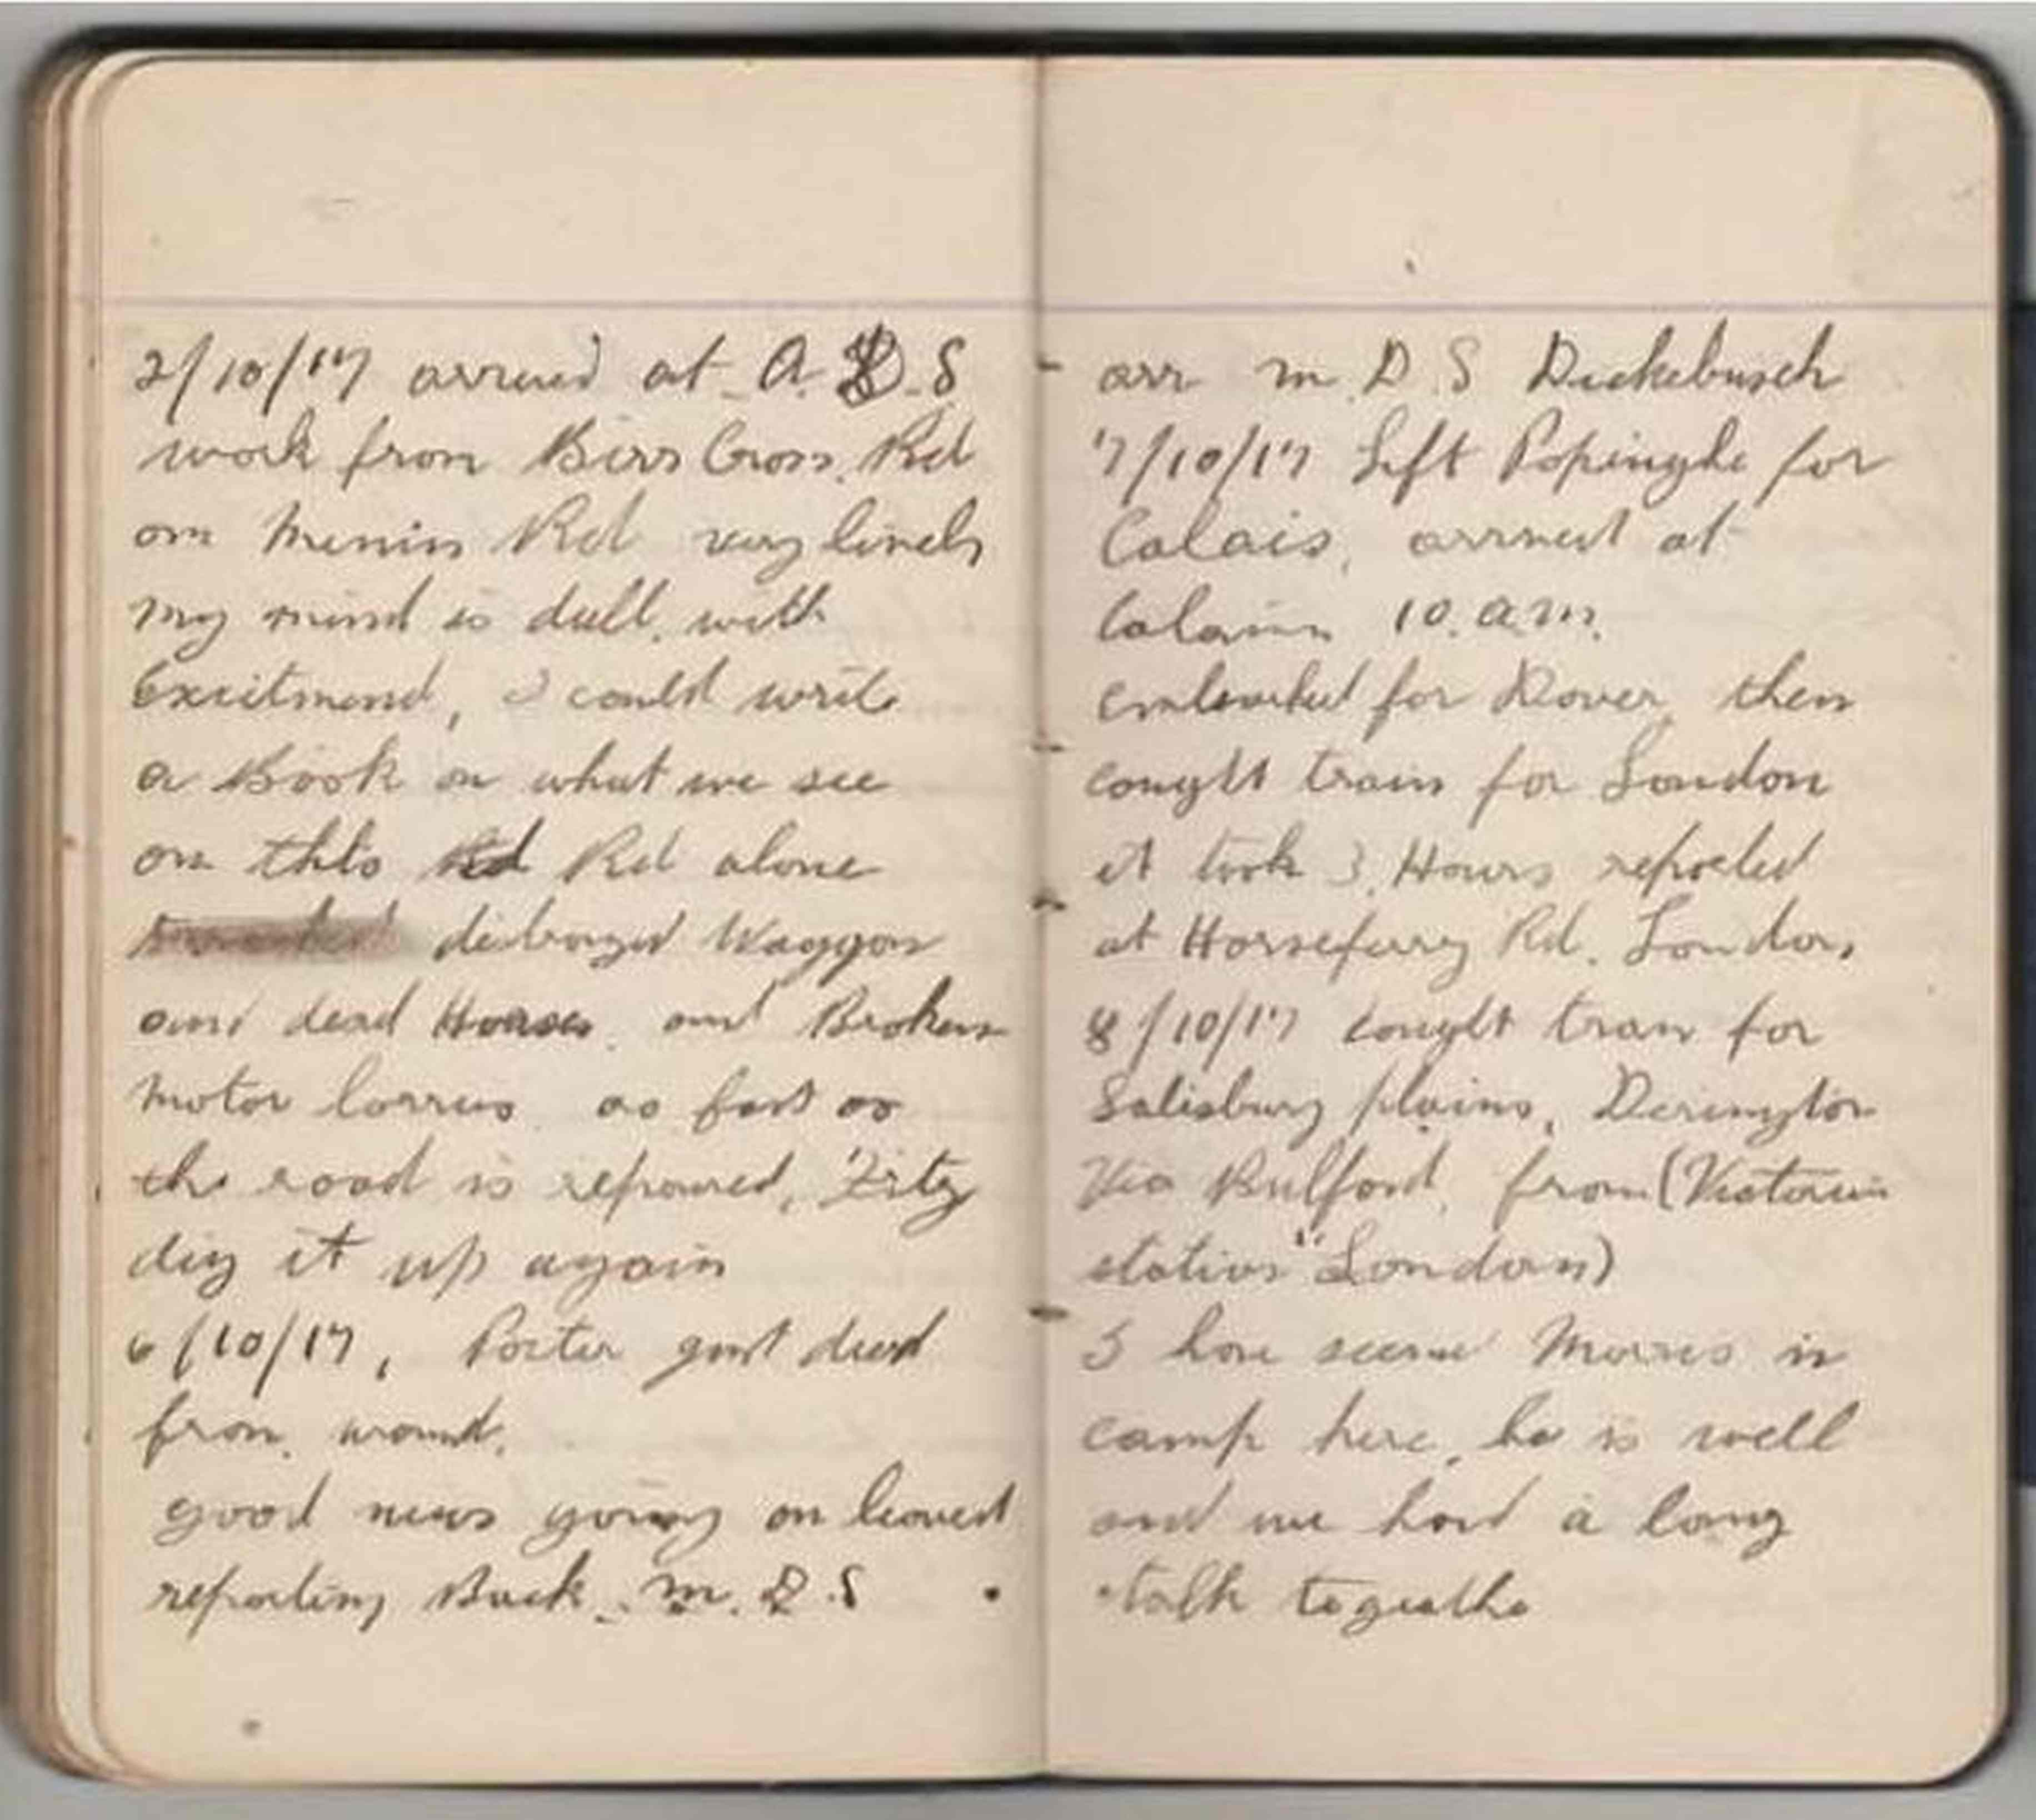 2/10/17 arrived at A.D.S
work from Birr Cross. Rd
on Menin Rd very lively
my mind is dull. with
Excitmend, I could write
a Book on what we see
on this Rd Rd alone
distroyed Waggon
and dead Horses. and Broken
motor lorries. as fast as
the road is repaired, Fritz
dig it up again
6/10/17, Porter just died
from. wound.
good news going on leaved
reporting Back. M.D.S
arr M.D.S Dickebusch
7/10/17 Left Popinghe for
Calais, arrived at
Calais 10.a.m.
embarked for Dover, then
cought train for London
it took 3. Hours reported
at Horseferry Rd. London,
8/10/17 cought train for
Salisbury plains, Derington
Via Bulford, from (Victoria
station" London)
I have seene Morris in
camp here, he is well
and we had a long
talk